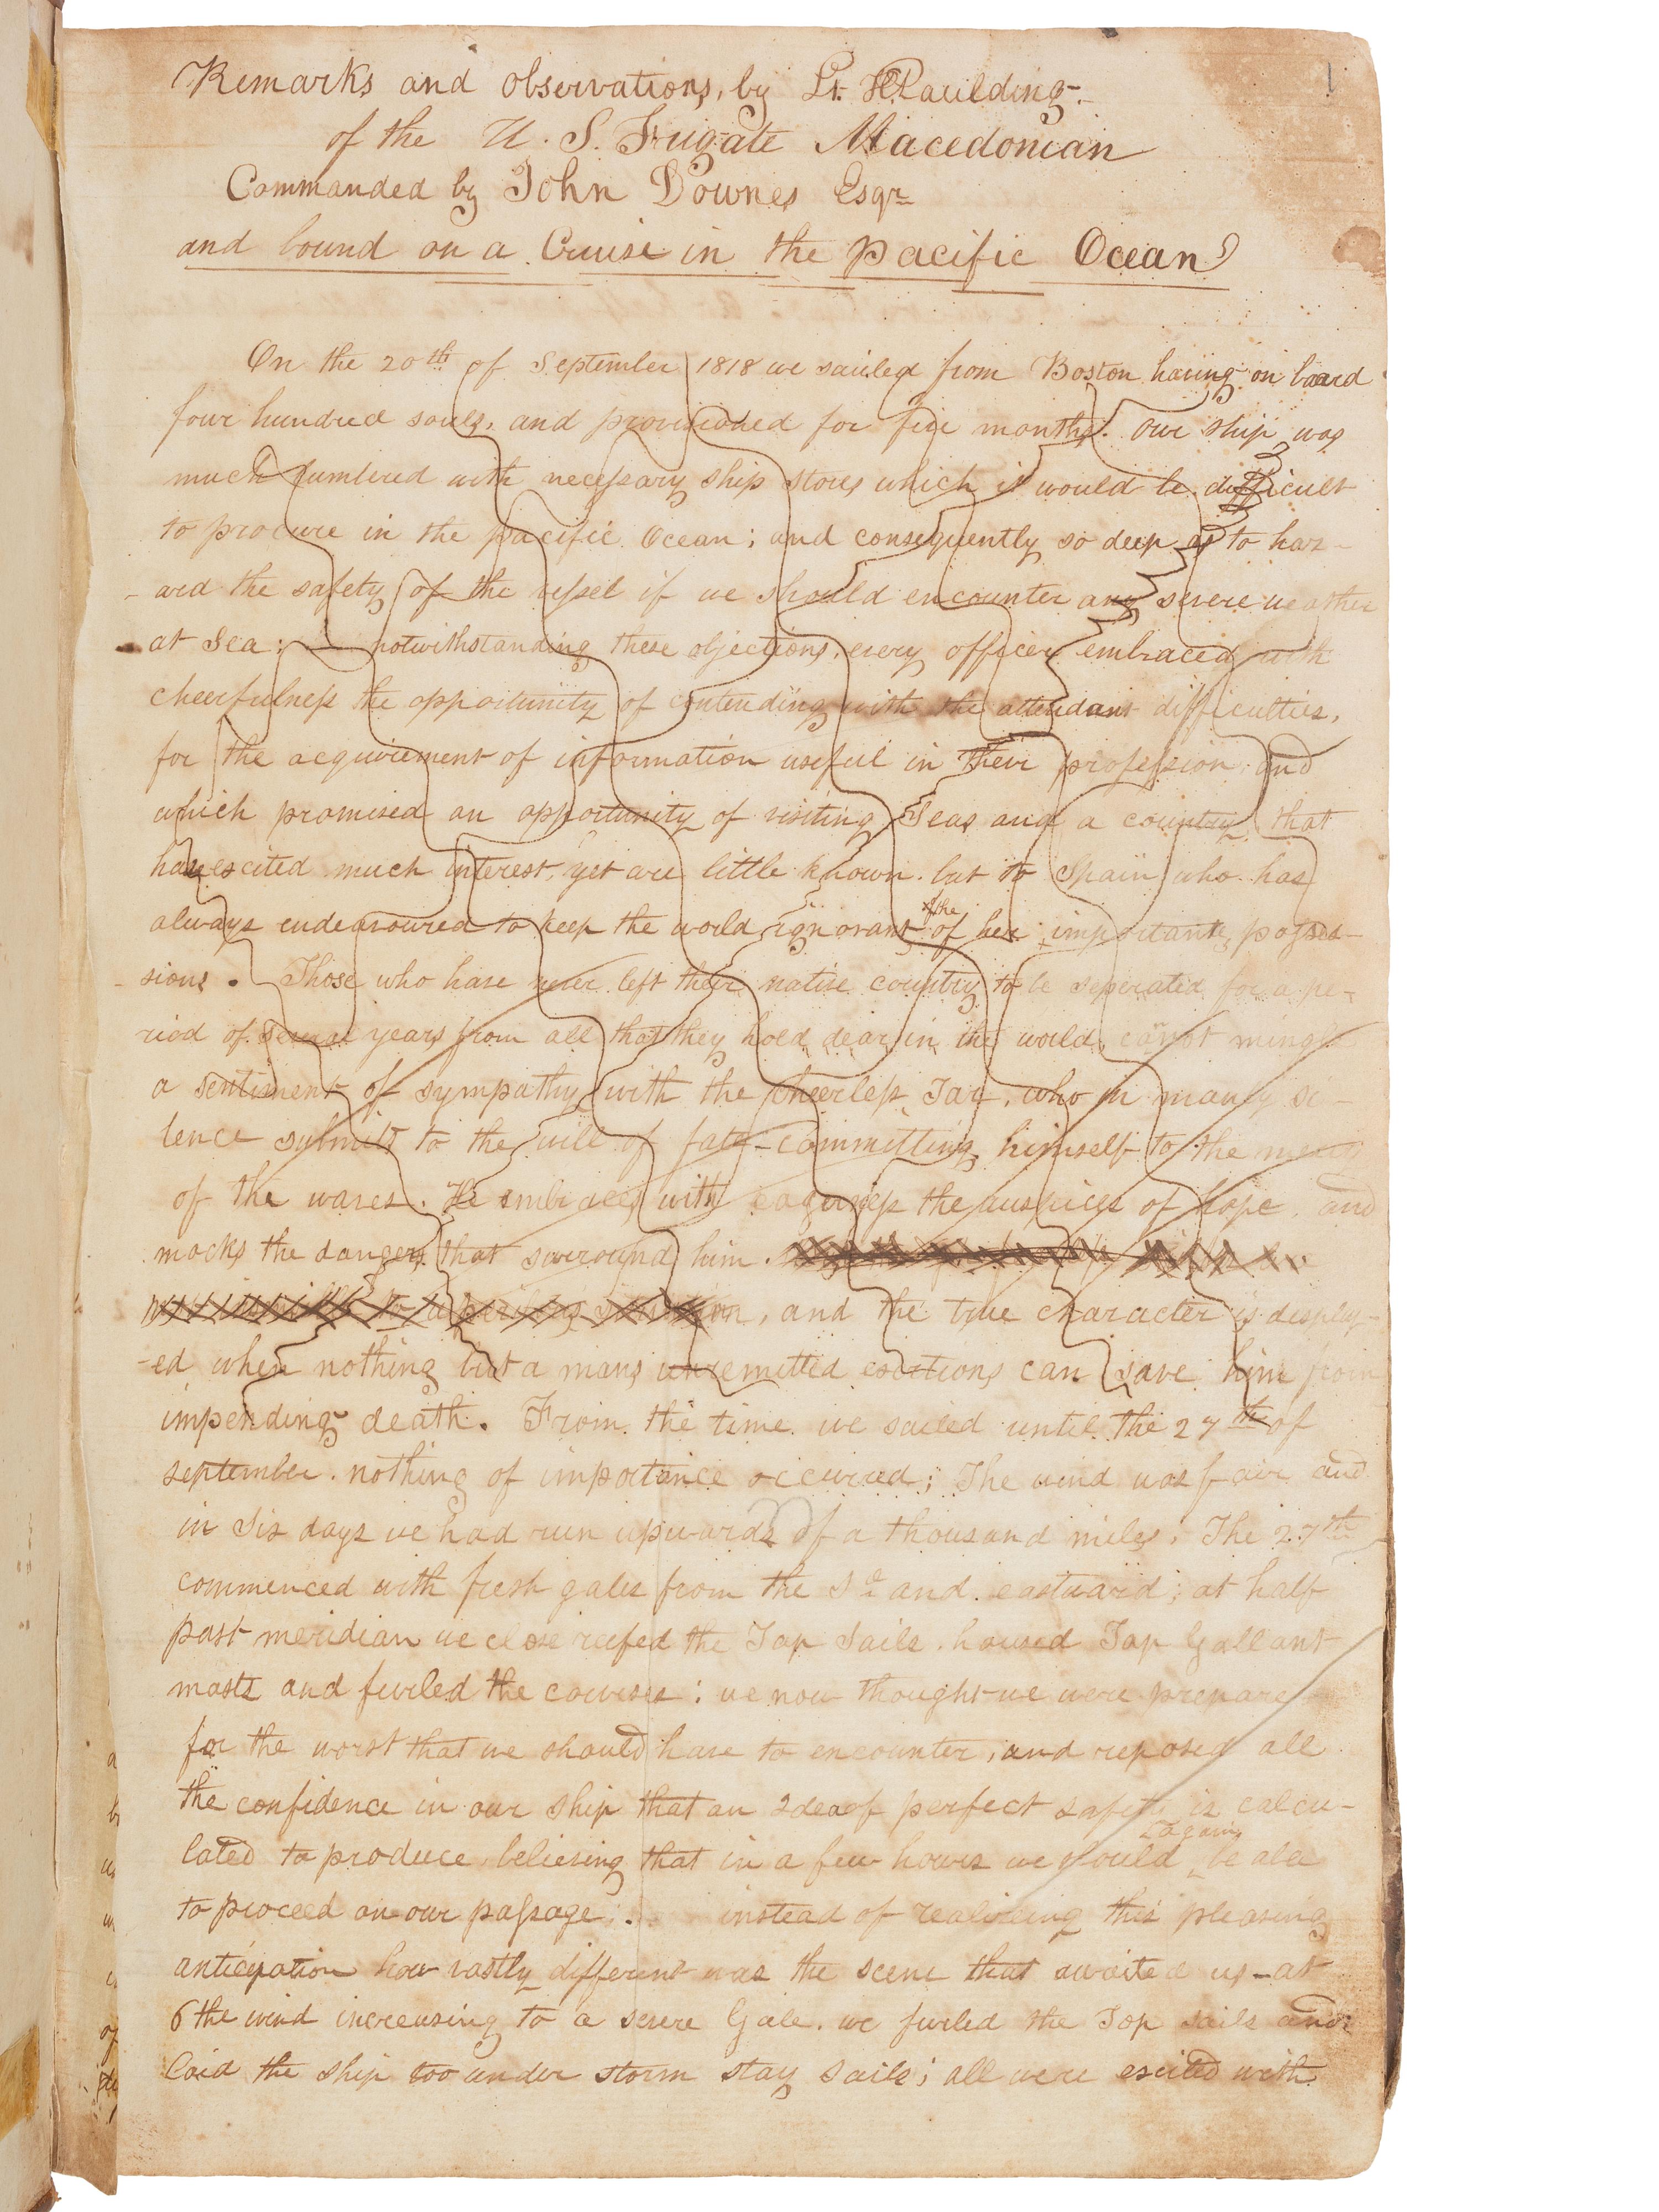 1
Remarks and observations, by Lt. H Paulding.
of the U. S. Frigate Macedonian
Commanded by John Downes Esqr
and bound on a Cruise in the Pacific Ocean
On the 20th of September 1818 we sailed from Boston having on board
four hundred souls, and provisioned for five months. our ship was
much lumbered with necessary ship stores which it would be difficult
to procure in the pacific Ocean; and consequently so deep as to haz-
-ard the safety of the vessel if we should encounter any severe weather
at Sea; — notwithstanding these objections, every officer embraced with
cheerfulness the opportunity of contending with the attendant difficulties,
for the acquirement of information useful in their profession, and
which promised an opportunity of visiting Seas and a country that
have excited much interest, yet are little known. but to Spain who has
always endeavoured to keep the world ignorant of the of her important posses-
-sions. Those who have never left their native country to be seperated for a pe-
riod of several years from all that they hold dear in the world, canot mingle
a sentiment of sympathy with the cheerless Tar, who in manly si-
lence submits to the will of fate - committing himself to the mercy
of the waves. He embraces with eagerness the auspices of hope, and
mocks the dangers that surround him.
, and the true character is display-
-ed when nothing but a mans unremitted exertions can save him from
impending death. From the time we sailed until the 27th of
september. nothing of importance occurred; The wind was fair and
in Six days we had run upwards of a thousand miles, The 27th
commenced with fresh gales from the Sd and. eastward; at half
past meridian we close reefed the Top Sails. housed Top Gallant
masts and furled the courses: we now thought we were prepared
for the worst that we should have to encounter, and reposed all
the confidence in our ship that an Idea of perfect safety is calcu-
lated to produce, believing that in a few hours we should again be able
to proceed on our passage. instead of realizeing this pleasing
anticipation how vastly different was the scene that awaited us - at
6 the wind increasing to a severe Gale. we furled the Top sails and
laid the ship too under storm stay sails; all were excited with